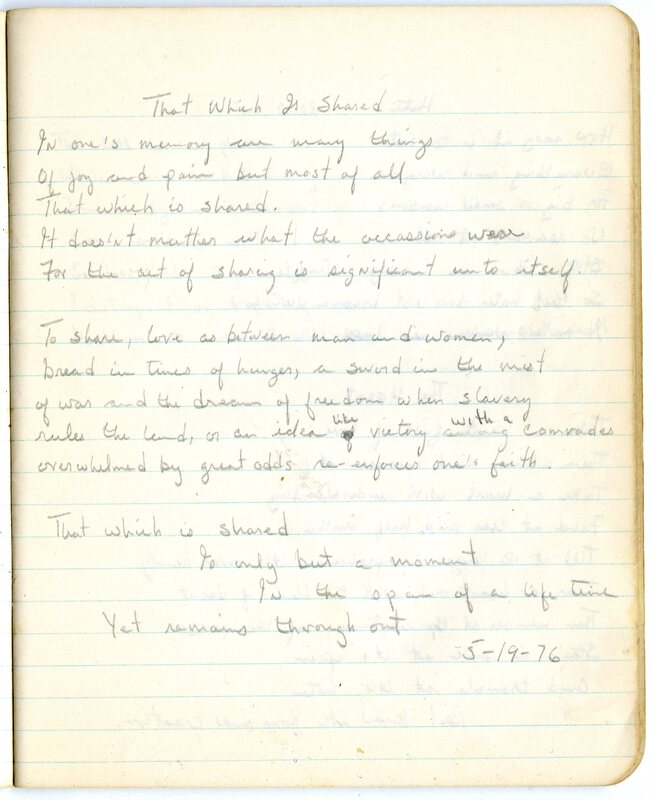 That Which Is Shared
In one's memory are many things
Of joy and pain but most of all
That which is shared.
It doesn't matther what the occassions were
For the act of sharing is significant unto itself.
To share, love as between man and women,
bread in times of hunger, a sword in the mist
of war and the dream of freedom when slavery
rules the land, or an idea like victory with a comrades
overwhelmed by great odds re-enforces one's faith.
That which is shared
Is only but a moment
In the span of a life time
Yet remains through out
5-19-76